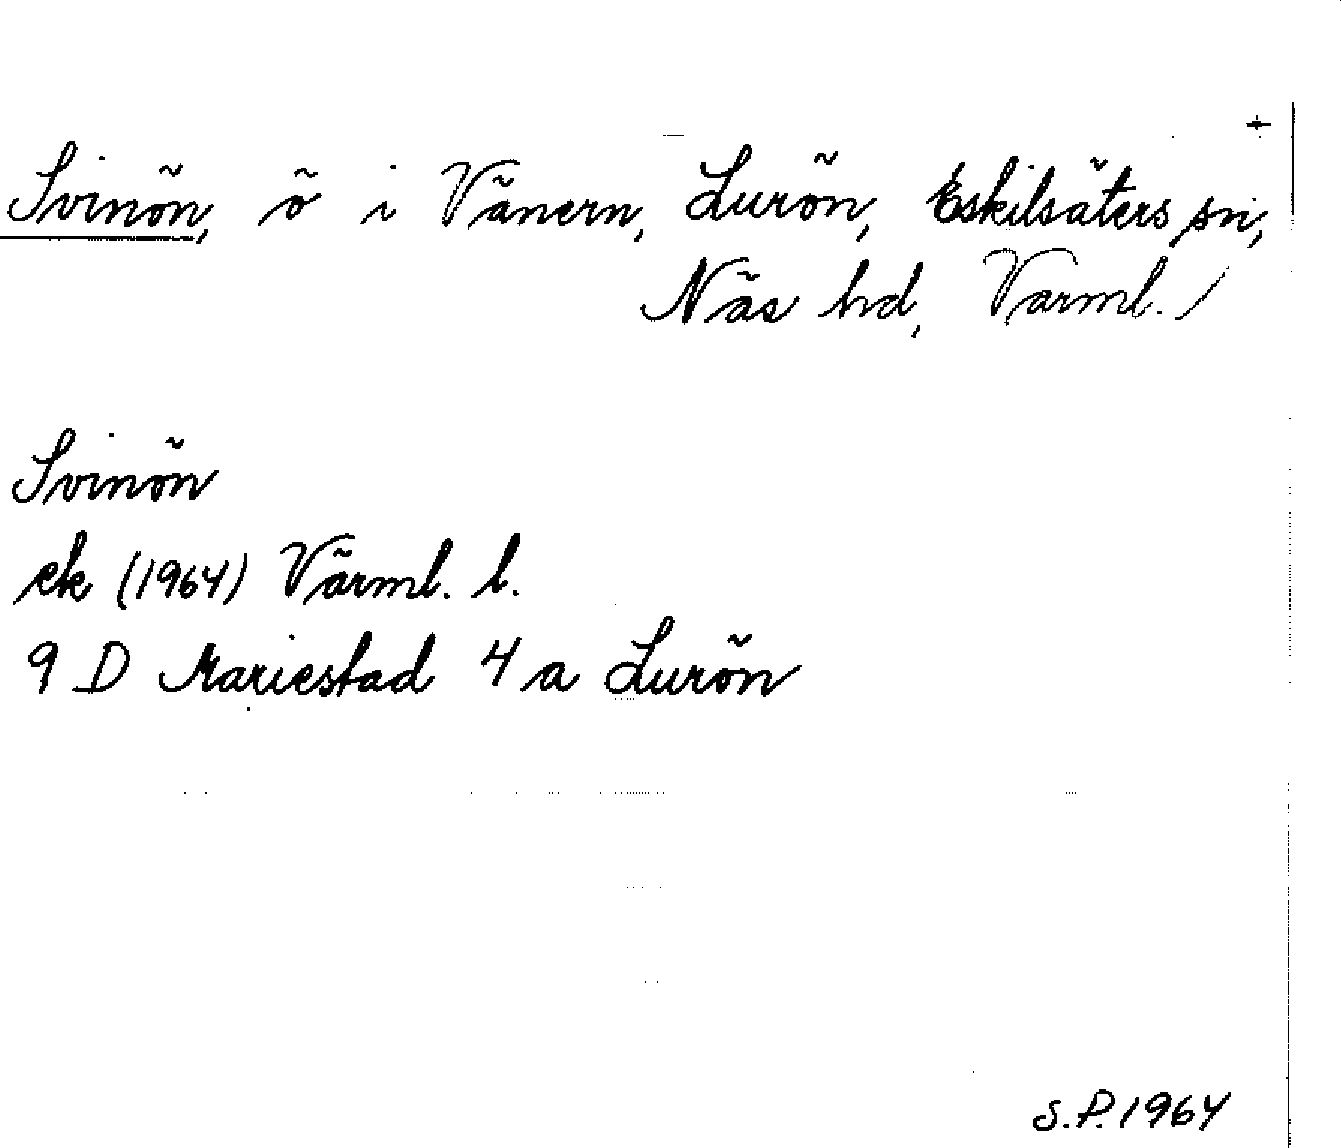 Svinön, ö i Vänern, Lurön, Eskilsäters sn,
Näs hd, Värml. /
Svinön
ek (1964) Värml. l.
9 D Mariestad 4 a Lurön
S.P. 1964